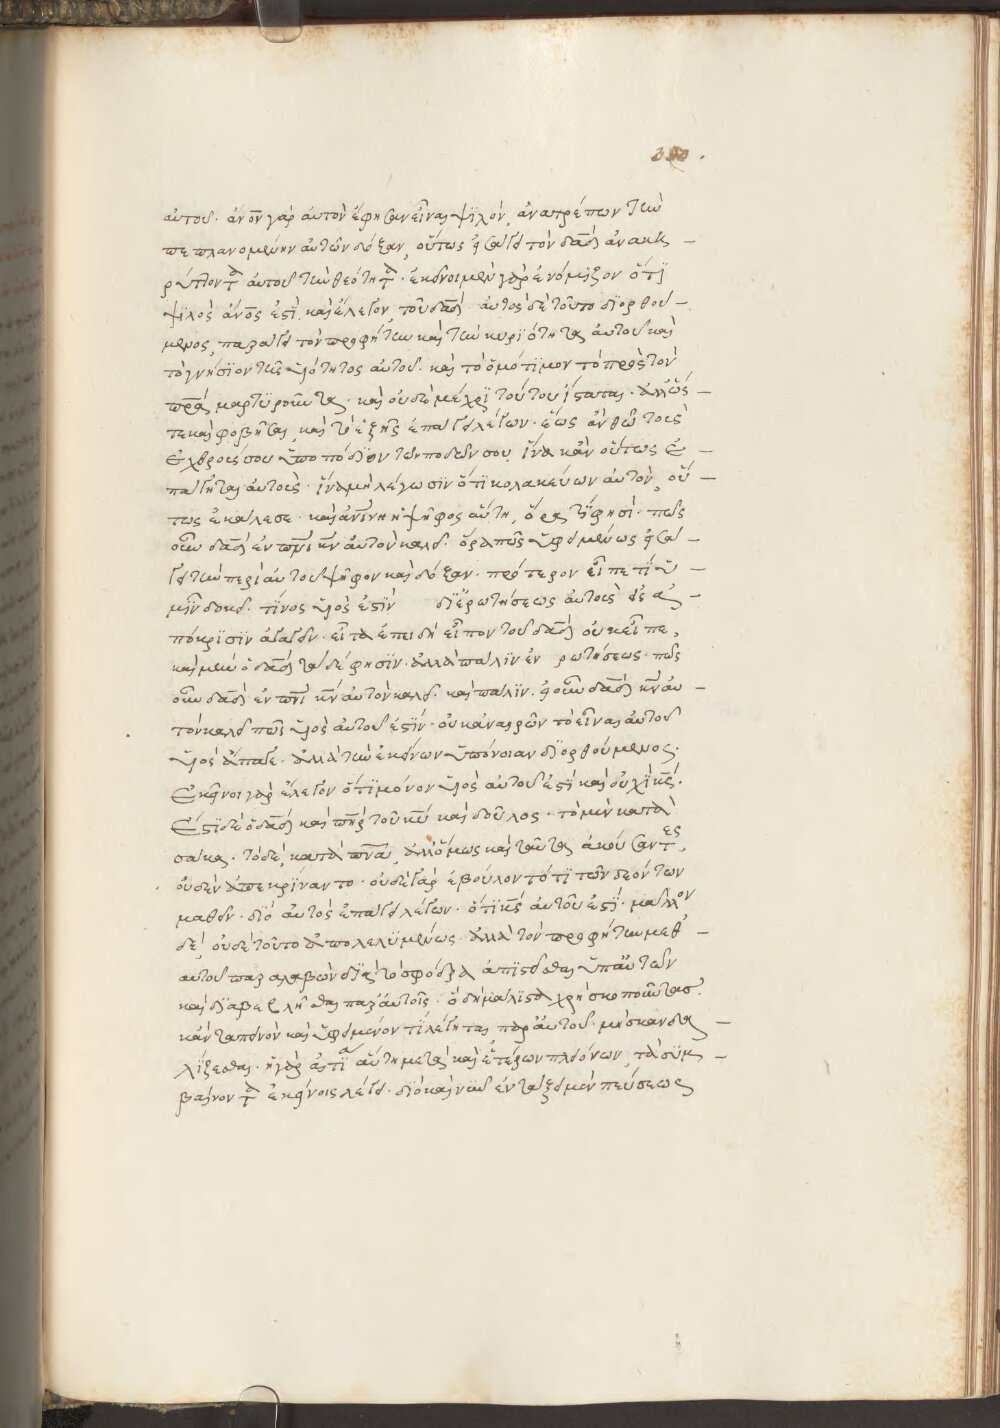 350.
αὐτοῦ· ἄνον γὰρ αὐτὸν ἔφησαν εἶναι ψϊλόν, ἀνατρέπων τὴν
πεπλανομένην αὐτῶν δόξαν, οὕτως εἰσάγει τὸν δαδ ἀνακη –
ρύττοντα αὐτοῦ τὴν θεότητα· ἐκεῖνοι μὲν γὰρ ἐνόμιζον ὅτϊ
ψϊλὸς ἄνος ἐστὶ καὶ ἔλεγον τοῦ δαδ· αὐτὸς δὲ τοῦτο δϊορθού –
μενος, παράγει τὸν προφήτην καὶ τὴν κυρϊότητα αὐτοῦ καὶ
τὸ γνήσϊον τῆς ὑϊότητος αὐτοῦ· καὶ τὸ ὁμότϊμον τὸ πρὸς τὸν
πρα μαρτϋροῦντα· καὶ οὐδὲ μέχρϊ τούτου ἵσταται· ἀλλ' ὥς –
τε καὶ φοβῆσαι καὶ τὸ ἑξῆς ἐπάγει λέγων· ἕως ἂν θῶ τοὺς
ἐχθρούς σου ὑποπόδϊον τῶν ποδῶν σου, ἵνα κἂν οὕτως ἐ –
πάγηται αὐτούς· ἵνα μὴ λέγωσϊν ὅτϊ κολακεύων αὐτὸν, οὕ –
τως ἐκάλεσε· καὶ ἀνϊνη ἡ ψῆφος αὕτη, ὅρα τί φησί· πῶς
οὖν δαδ ἐν πνι κν αὐτὸν καλεῖ· ὅρα πῶς ὑφειμένως εἰσά –
γει τὴν περὶ αὐτοῦ ψῆφον καὶ δόξαν· πρότερον εἶπε τί ὑ –
μῖν δοκεῖ· τίνος ὑϊός ἐστϊν δϊ' ἐρωτήσεως αὐτοὺς εἰς ἀ –
πόκρϊσϊν ἀγαγεῖν· εἶτα ἐπειδὴ εἶπον τοῦ δαδ οὐκ εἶπε,
καὶ μὴν ὁ δαδ τάδε φησϊν· ἀλλὰ πάλϊν ἐν ρωτήσεως· πῶς
οὖν δαδ ἐν πνι κν αὐτὸν καλεῖ· καὶ πάλϊν· εἰ οὖν δαδ κν αὐ –
τὸν καλεῖ πῶς ὑϊὸς αὐτοῦ ἐστϊν· οὐκ ἀναιρῶν τὸ εἶναι αὐτοῦ
ὑϊὸς ἄπαγε· ἀλλὰ τὴν ἐκείνων ὑπόνοιαν δϊορθούμενος·
ἐκεῖνοι γὰρ ἔλεγον ὅτϊ μόνον ὑϊὸς αὐτοῦ ἐστὶ καὶ οὐχϊ κς·
ἔστϊ δὲ ὁ δαδ καὶ πηρ τοῦ κυ καὶ δοῦλος· τὸ μὲν κατὰ
σάρκα· τὸ δὲ, κατὰ πνα, ἀλλ' ὅμως καὶ ταῦτα ἀκούσαντες,
οὐδὲν ἀπεκρίναντο· οὐδὲ γὰρ ἐβούλοντό τϊ τῶν δεόντων
μαθεῖν· δϊό αὐτὸς ἐπάγει λέγων· ὅτϊ κς αὐτοῦ ἐστί· μᾶλλον
δὲ, οὐδὲ τοῦτο ἀπολελϋμένως· ἀλλὰ τὸν προφήτην μεθ' –
αὐτοῦ παραλαβὼν δϊὰ τὸ σφόδρα ἀπϊστεῖσθαι ὑπ' αὐτῶν
καὶ δϊαβεβλῆσθαι παρ' αὐτοῖς· ὃ δὴ μάλϊστα χρὴ σκοποῦντας·
κἂν ταπεινὸν καὶ ὑφειμένον τϊ λέγηται παρ' αὐτοῦ· μὴ σκανδα –
λίζεσθαι· ἡ γὰρ αἰτία αὕτη μετὰ καὶ ἑτέρων πλειόνων, τὰ συμ –
βαίνοντα ἐκείνοις λέγει· δϊὸ καὶ νῦν ἐν τάξει μὲν πεύσεως